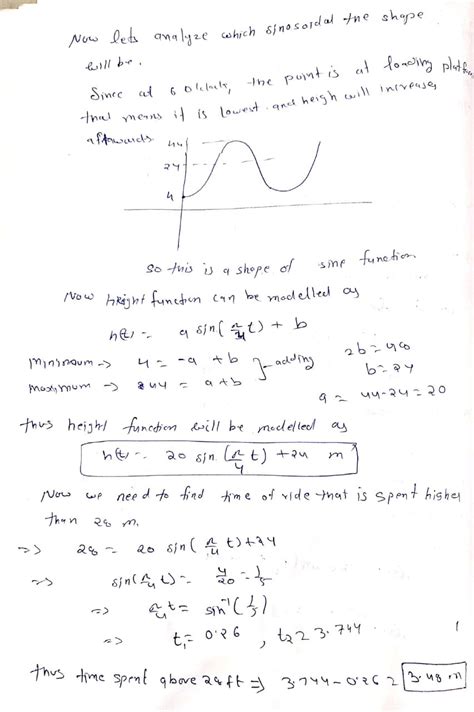 Now lets analyze which sinosoidal the shape
will be.
Since at 6 O'clock, the point is at loading platform
that means it is lowest and heigh will increases
afterwards
44
24
4
So this is a shape of sine function.
Now height function can be modelled as
h(t) = a sin(π/4 t) + b
Minimum → 4 = -a + b } adding 2b = 48
b = 24
Maximum → 44 = a + b
a = 44-24 = 20
thus height function will be modelled as
h(t) = 20 sin (π/4 t) + 24 m
Now we need to find time of ride that is spent higher
than 28 m.
=> 28 = 20 sin (π/4 t) + 24
=> sin(π/4 t) = 4/20 = 1/5
=> π/4 t = sin⁻¹(1/5)
=> t₁ = 0.26 , t₂ = 3.744
thus time spent above 28 ft => 3.744 - 0.26 = 3.48 m